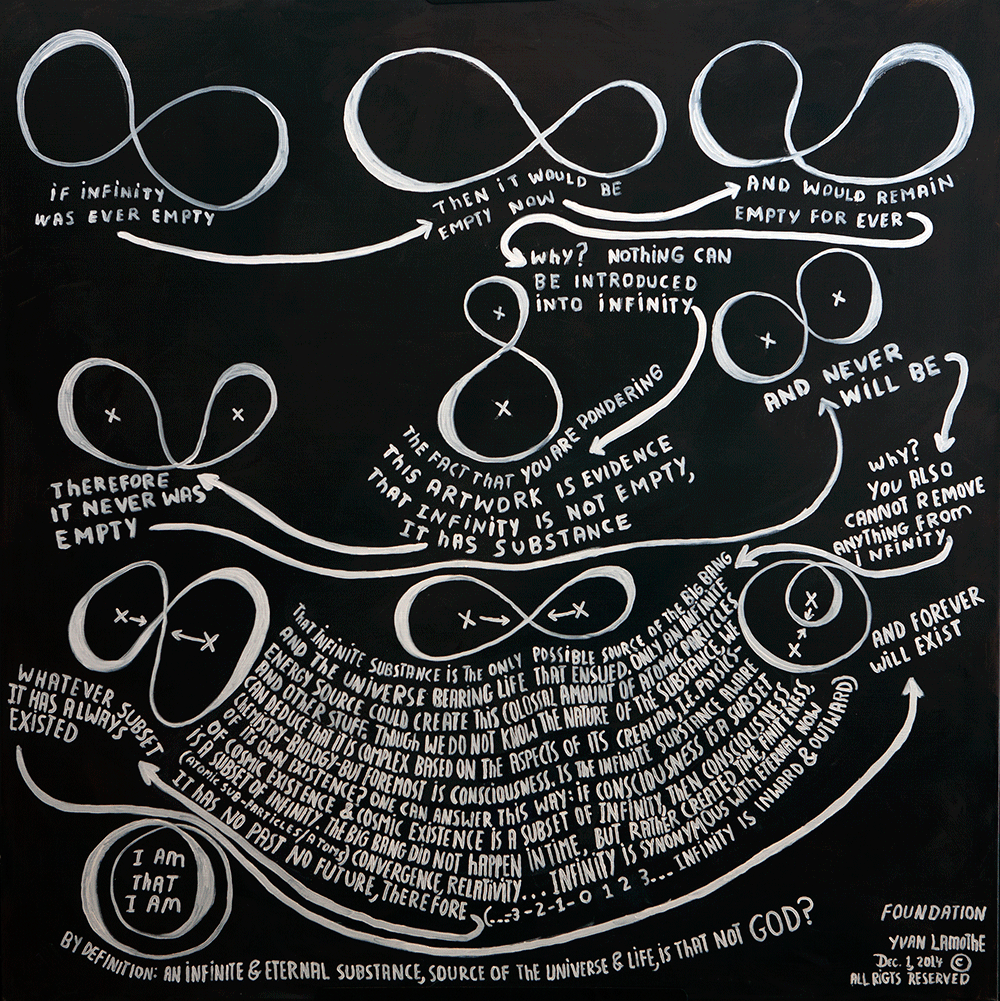 IF INFINITY
WAS EVER EMPTY
THEN IT WOULD BE
EMPTY NOW
AND WOULD REMAIN
EMPTY FOR EVER
WHY? NOTHING CAN
BE INTRODUCED
INTO INFINITY
THE FACT THAT YOU ARE PONDERING
THIS ARTWORK IS EVIDENCE
THAT INFINITY IS NOT EMPTY,
IT HAS SUBSTANCE
THEREFORE
IT NEVER WAS
EMPTY
AND NEVER
WILL BE
WHY?
YOU ALSO
CANNOT REMOVE
ANYTHING FROM
INFINITY
THAT INFINITE SUBSTANCE IS THE ONLY POSSIBLE SOURCE OF THE BIG BANG
AND THE UNIVERSE BEARING LIFE THAT ENSUED, ONLY AN INFINITE
ENERGY SOURCE COULD CREATE THIS COLOSAL AMOUNT OF ATOMIC ARTICLES
AND OTHER STUFF. THOUGH WE DO NOT KNOW THE NATURE OF THE SUBSTANCE, WE
CAN DEDUCE THAT IT IS COMPLEX BASED ON THE ASPECTS OF ITS CREATION, I.E. PHYSICS-
CHEMISTRY-BIOLOGY-BUT FOREMOST IS CONSCIOUSNESS. IS THE INFINITE SUBSTANCE AWARE
OF ITS OWN EXISTENCE? ONE CAN ANSWER THIS WAY: IF CONSCIOUSNESS IS A SUBSET
OF COSMIC EXISTENCE & COSMIC EXISTENCE IS A SUBSET OF INFINITY, THEN CONSCIOUSNESS
IS A SUBSET OF INFINITY. THE BIG BANG DID NOT HAPPEN IN TIME, BUT RATHER CREATED TIME, FINITENESS
(ATOMIC SUB-ARTICLES/ATOMS) CONVERGENCE, RELATIVITY... INFINITY IS SYNONYMOUS WITH ETERNAL NOW
IT HAS NO PAST NO FUTURE, THEREFORE (...-3-2-1-0 1 2 3... INFINITY IS INWARD & OUTWARD)
WHATEVER SUBSET
IT HAS ALWAYS
EXISTED
AND FOREVER
WILL EXIST
I AM
THAT
I AM
BY DEFINITION: AN INFINITE & ETERNAL SUBSTANCE, SOURCE OF THE UNIVERSE & LIFE, IS THAT NOT GOD?
FOUNDATION
YVAN LAMOTHE
DEC. 1, 2014 ©
ALL RIGTS RESERVED